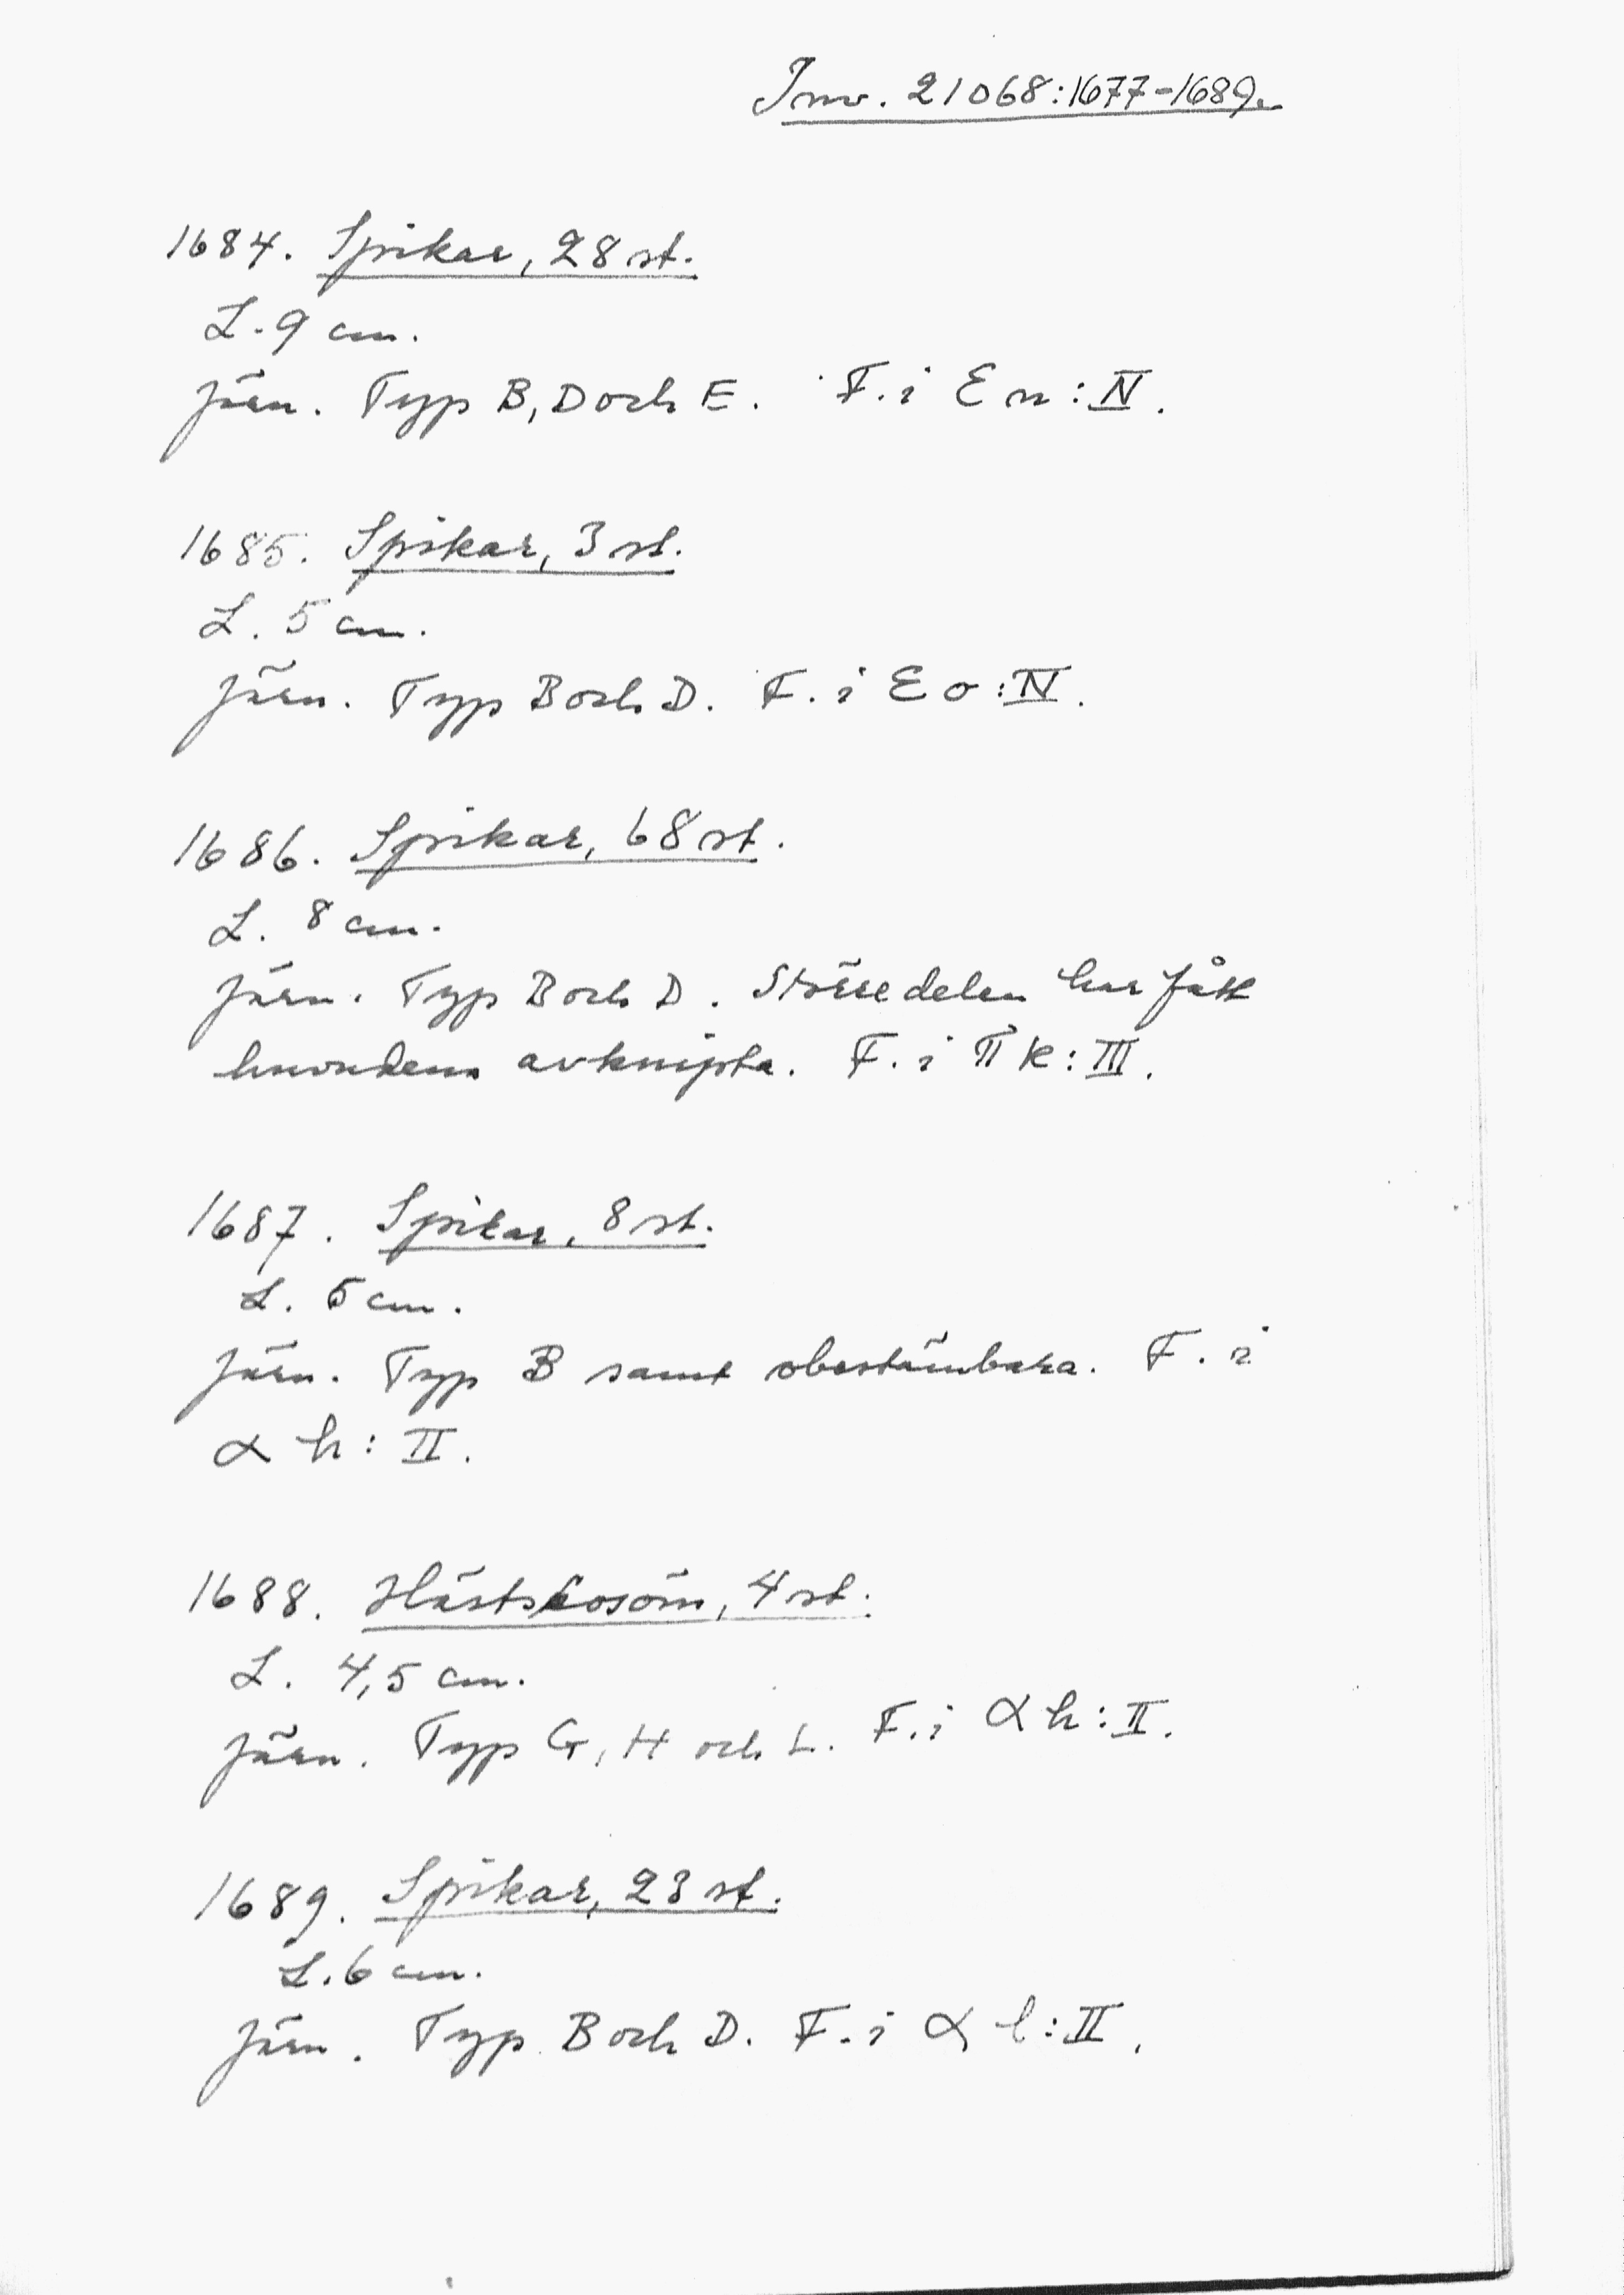 Inv. 21068:1677-1689.
1684. Spikar, 28 st.
L. 9 cm.
Järn. Typ B, D och E. F. i E n: IV.
1685. Spikar, 3 st.
L. 5 cm.
Järn. Typ B och D. F. i E o: IV.
1686. Spikar, 68 st.
L. 8 cm.
Järn. Typ B och D. Större delen har fått
huvuden avknipta. F. i π k: III.
1687. Spikar, 8 st.
L. 5 cm.
Järn. Typ B samt obestämbara. F. i
α h: II.
1688. Hästskosöm, 4 st.
L. 4,5 cm.
Järn. Typ G, H och L. F. i α h: II.
1689. Spikar, 23 st.
L. 6 cm.
Järn. Typ B och D. F. i α l: II.